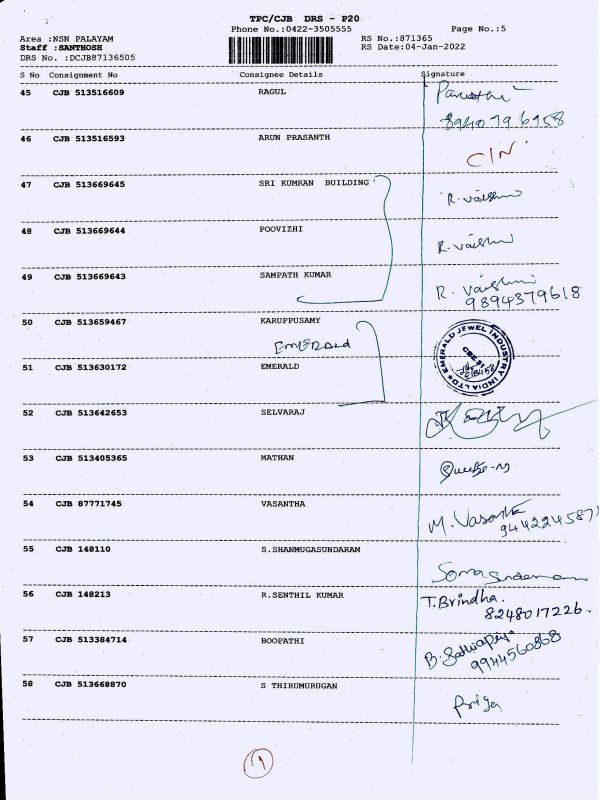 TPC/CJB DRS - P20
Phone No.:0422-3505555
Page No.:5
Area :NSN PALAYAM
RS No.:871365
Staff :SANTHOSH
RS Date:04-Jan-2022
DRS No. :DCJB87136505
S No Consignment No Consignee Details Signature
45 CJB 513516609 RAGUL
8940796958
46 CJB 513516593 ARUN PRASANTH
C/N
47 CJB 513669645 SRI KUMRAN BUILDING
R. vaishni
48 CJB 513669644 POOVIZHI
R. vaishni
49 CJB 513669643 SAMPATH KUMAR
R. vaishni
9894379618
50 CJB 513659467 KARUPPUSAMY
EMERALD
EMERALD JEWEL INDUSTRY INDIA LTD
51 CJB 513630172 EMERALD
52 CJB 513642653 SELVARAJ
53 CJB 513405365 MATHAN
54 CJB 87771745 VASANTHA
M. Vasantha
55 CJB 148110 S.SHANMUGASUNDARAM
56 CJB 148213 R.SENTHIL KUMAR
T. Brindha.
8248017226.
57 CJB 513384714 BOOPATHI
9944560868
58 CJB 513668870 S THIRUMURUGAN
Priya